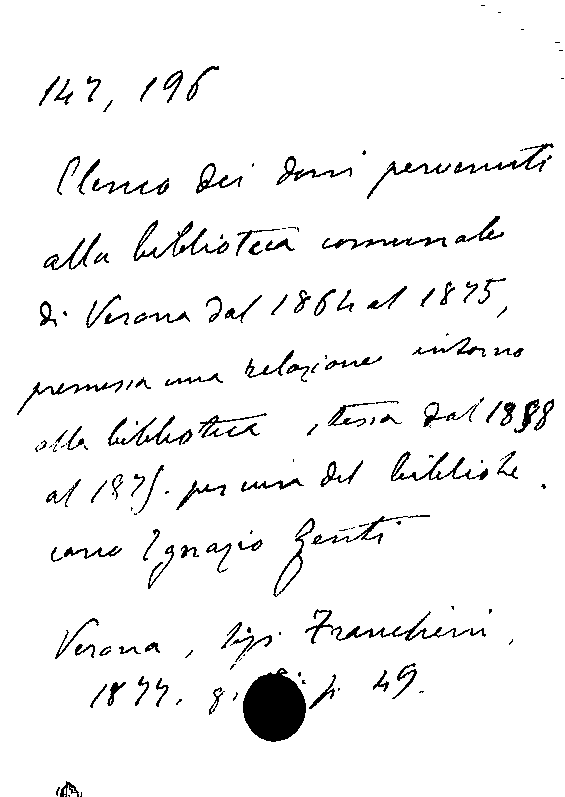 147, 196
Elenco dei doni pervenuti
alla biblioteca comunale
di Verona dal 1864 al 1875,
premessa una relazione intorno
alla biblioteca stessa dal 1858
al 1875. per cura del bibliote
cario Ignazio Zenti
Verona, tip. Franchini,
1877. p. 49.